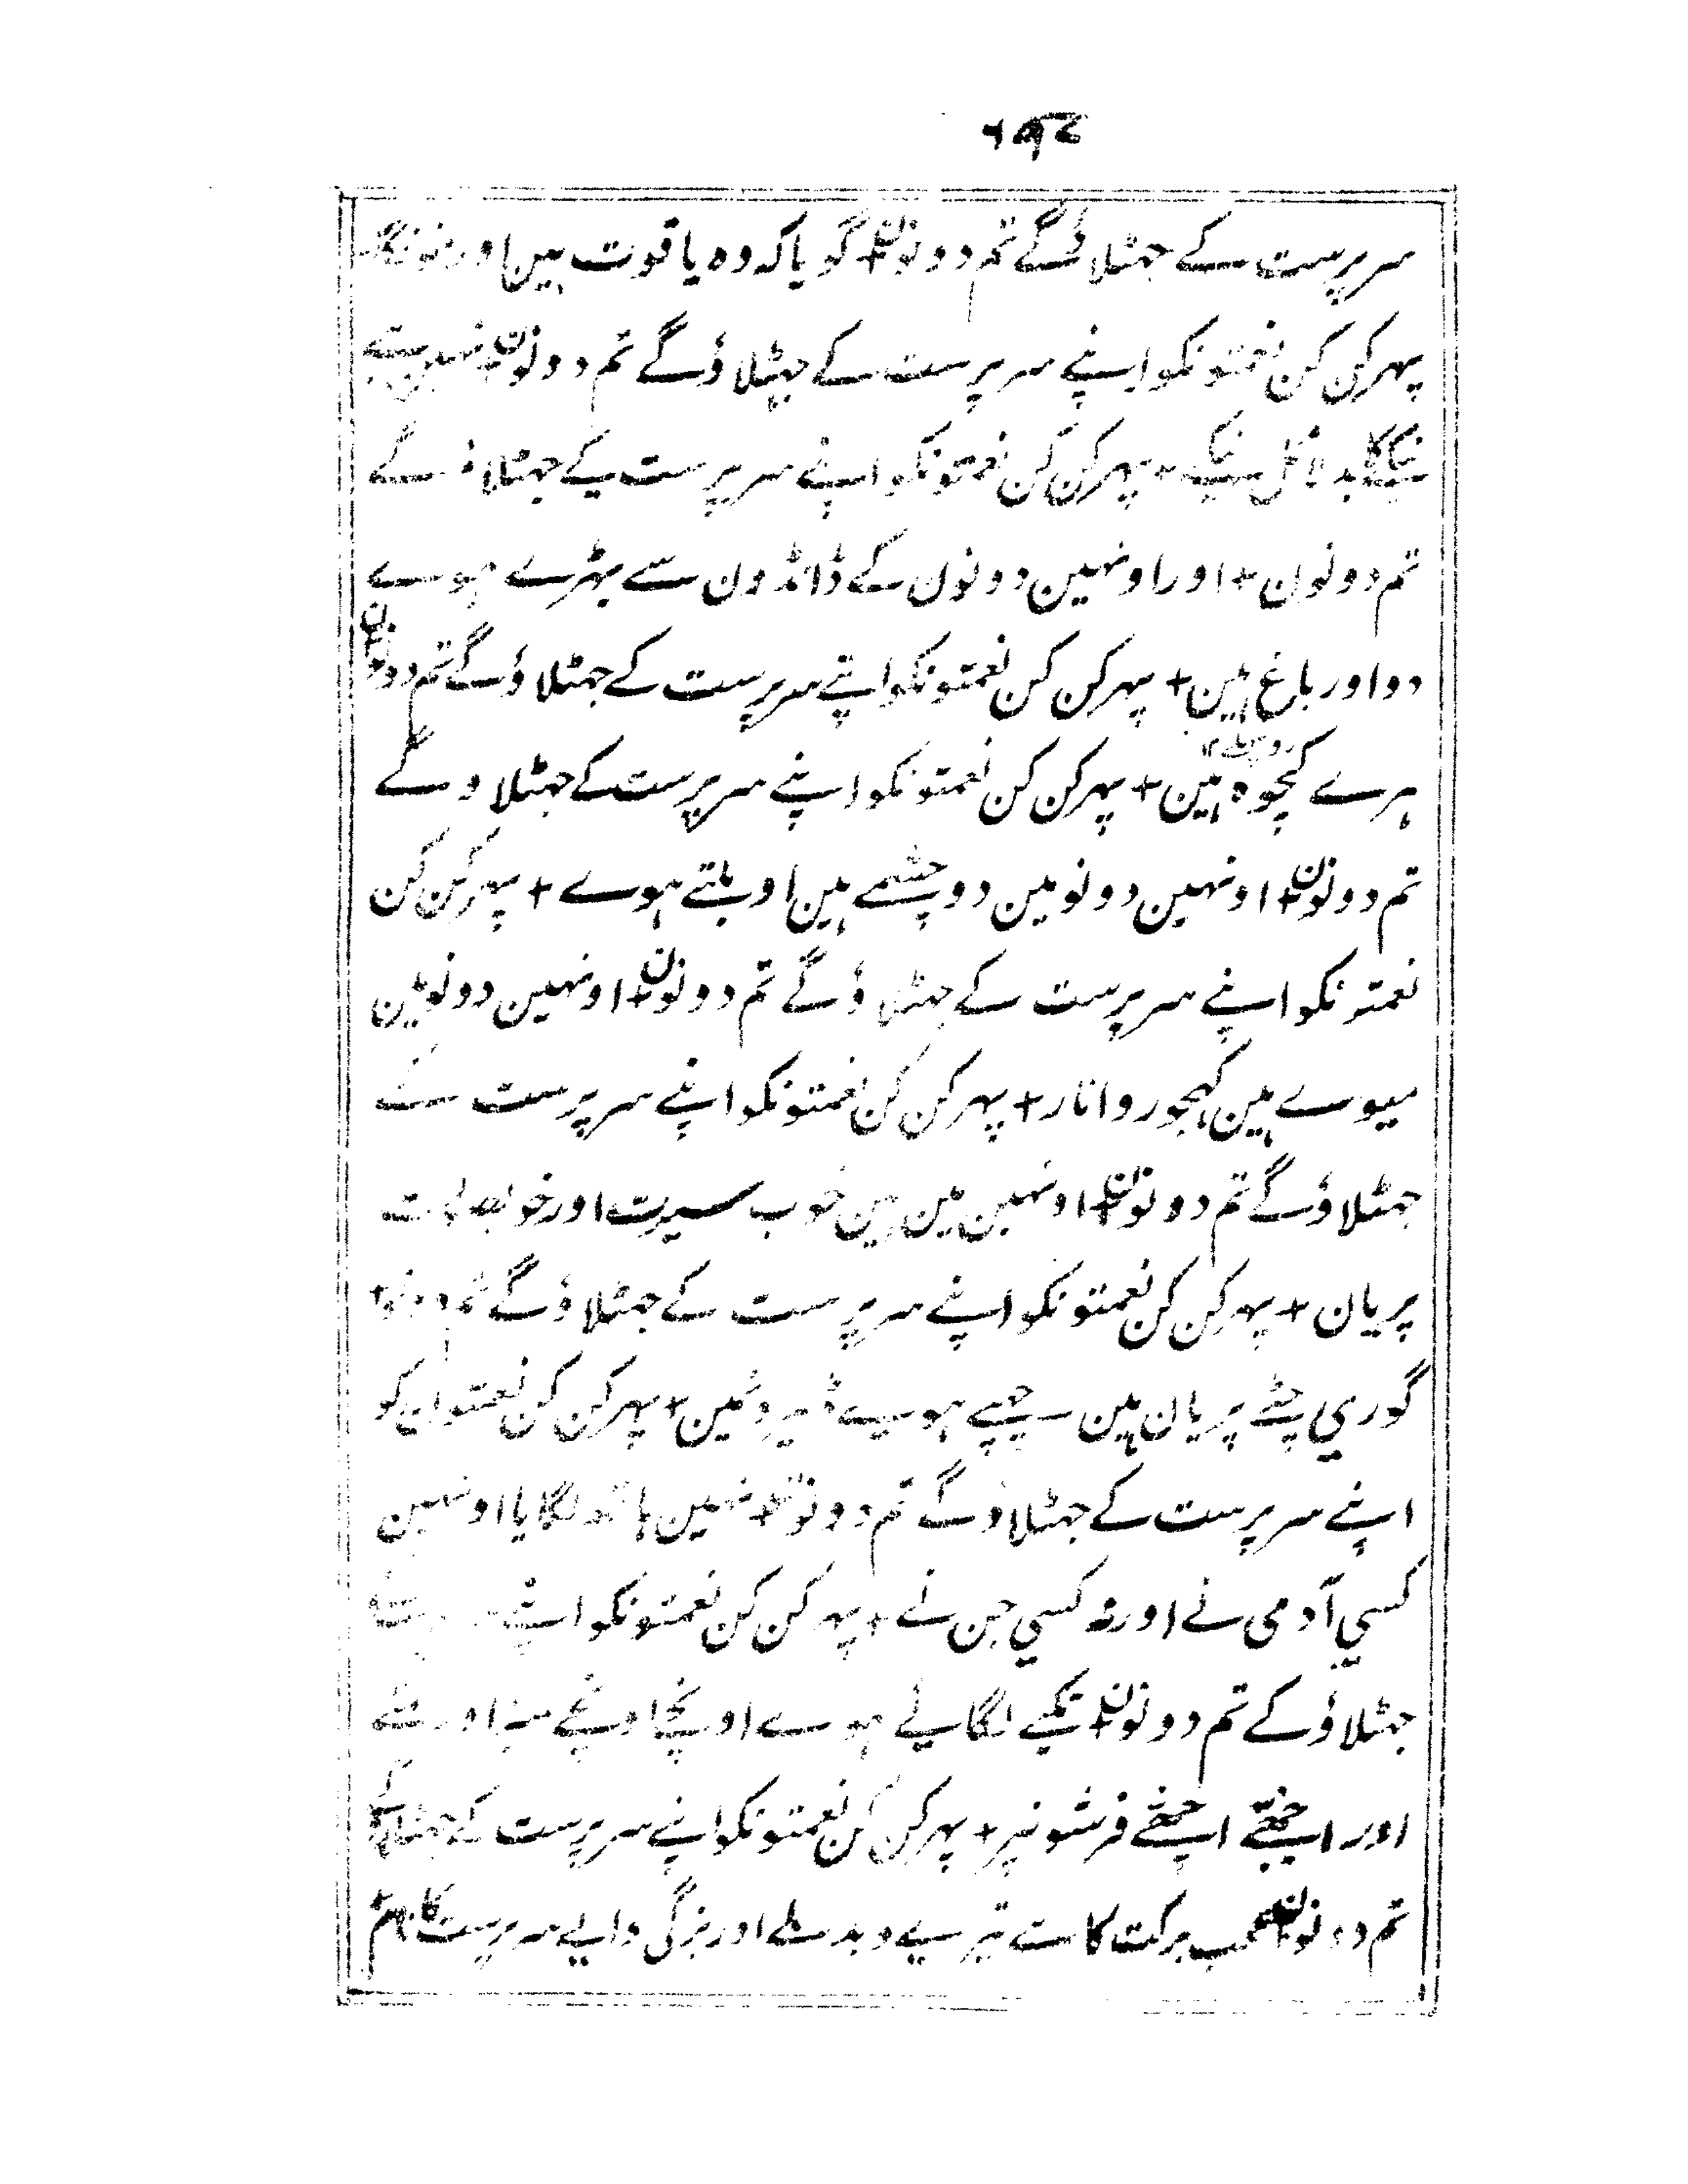 سرپرست کے جہٹلاؤگے تم دونون + گویا که وه یاقوت ہین اور مونگا
پہر کن کن نعمتونکو اپنے سرپرست کے جہٹلاؤگے تم دونون + نہین ہے
نیکیکا بدلا مگر نیکی + پہر کن کن نعمتونکو اپنے سرپرست کے جہٹلاؤگے
تم دونون + اور اونہین دونون کے ڈانڈون سے بہڑے ہوے
دو اور باغ ہین + پہر کن کن نعمتونکو اپنے سرپرست کے جہٹلاؤگے تم دونون
ہرے کچوه ہین + پہر کن کن نعمتونکو اپنے سرپرست کے جہٹلاوگے
تم دونون + اونہین دونو مین دو چشمے ہین اوبلتے ہوے + پہر کن کن
نعمتونکو اپنے سرپرست کے جہٹلاؤگے تم دونون + اونہین دونو مین
میوے ہین کہجور و انار + پہر کن کن نعمتونکو اپنے سرپرست کے
جہٹلاؤگے تم دونون + اونہین مین ہین خوب سیرت اور خوبصورت
پریان + پہر کن کن نعمتونکو اپنے سرپرست کے جہٹلاؤگے تم دونون +
گوري چٹے پریان ہین چہپے ہوے ڈیرونمین + پہر کن کن نعمتوان کو
اپنے سرپرست کے جہٹلاؤگے تم دونون + نہین ہاتہ لگایا اونہین
کسي آدمی نے اور نه کسي جن نے + پہر کن کن نعمتونکو اپنے سرپرست کے
جہٹلاؤگے تم دونون + تکیے لگائے ہوے اونچے اونچے
اور اچہے اچہے فرشونپر + پہر کن کن نعمتونکو اپنے سرپرست کے جہٹلاؤگے
تم دونون + عجب برکت کا ہے تیرے دبدبے اور بزرگی والے سرپرست کا نام +